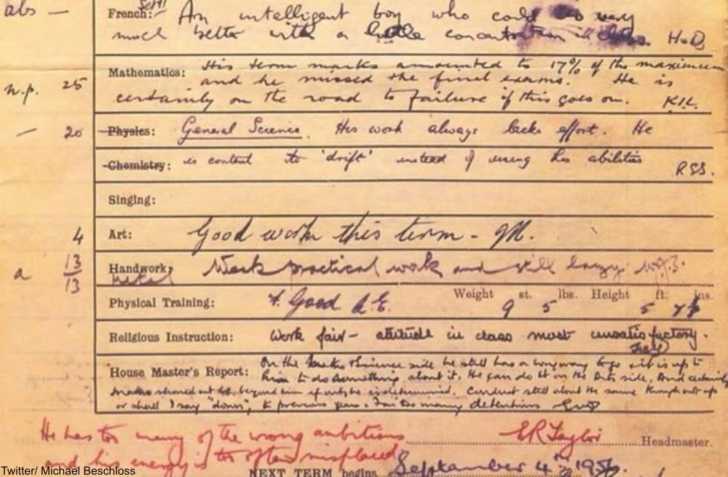 abs — French: An intelligent boy who could do very
much better with a little concentration in class. H.B.
Mathematics: His term marks amounted to 17% of the maximum
n.p. 25 and he missed the final exams. He is
certainly on the road to failure if this goes on.
— 20 Physics: General Science. His work always lacks effort. He
Chemistry: is content to 'drift' instead of using his abilities
R.S.S.
Singing:
4 Art: Good work this term -
a 13/13 Handwork: Metal work and still lazy.
Physical Training: F. Good Weight 9 st. 5 lbs. Height 5 ft. 7½ ins.
Religious Instruction: Work fair – attitude in class most unsatisfactory.
House Master's Report: On the Maths & Science side he still has a long way to go & it is up to
him to do something about it. He can do it on the Arts side. And certainly
Maths should not be beyond him if only he is determined. Conduct still about the same though not up
or shall I say "down", to previous years. Far too many detentions
He has too many of the wrong ambitions
E R Taylor Headmaster.
and his energy is too often misplaced.
NEXT TERM begins September 4th 1956.
Twitter/ Michael Beschloss